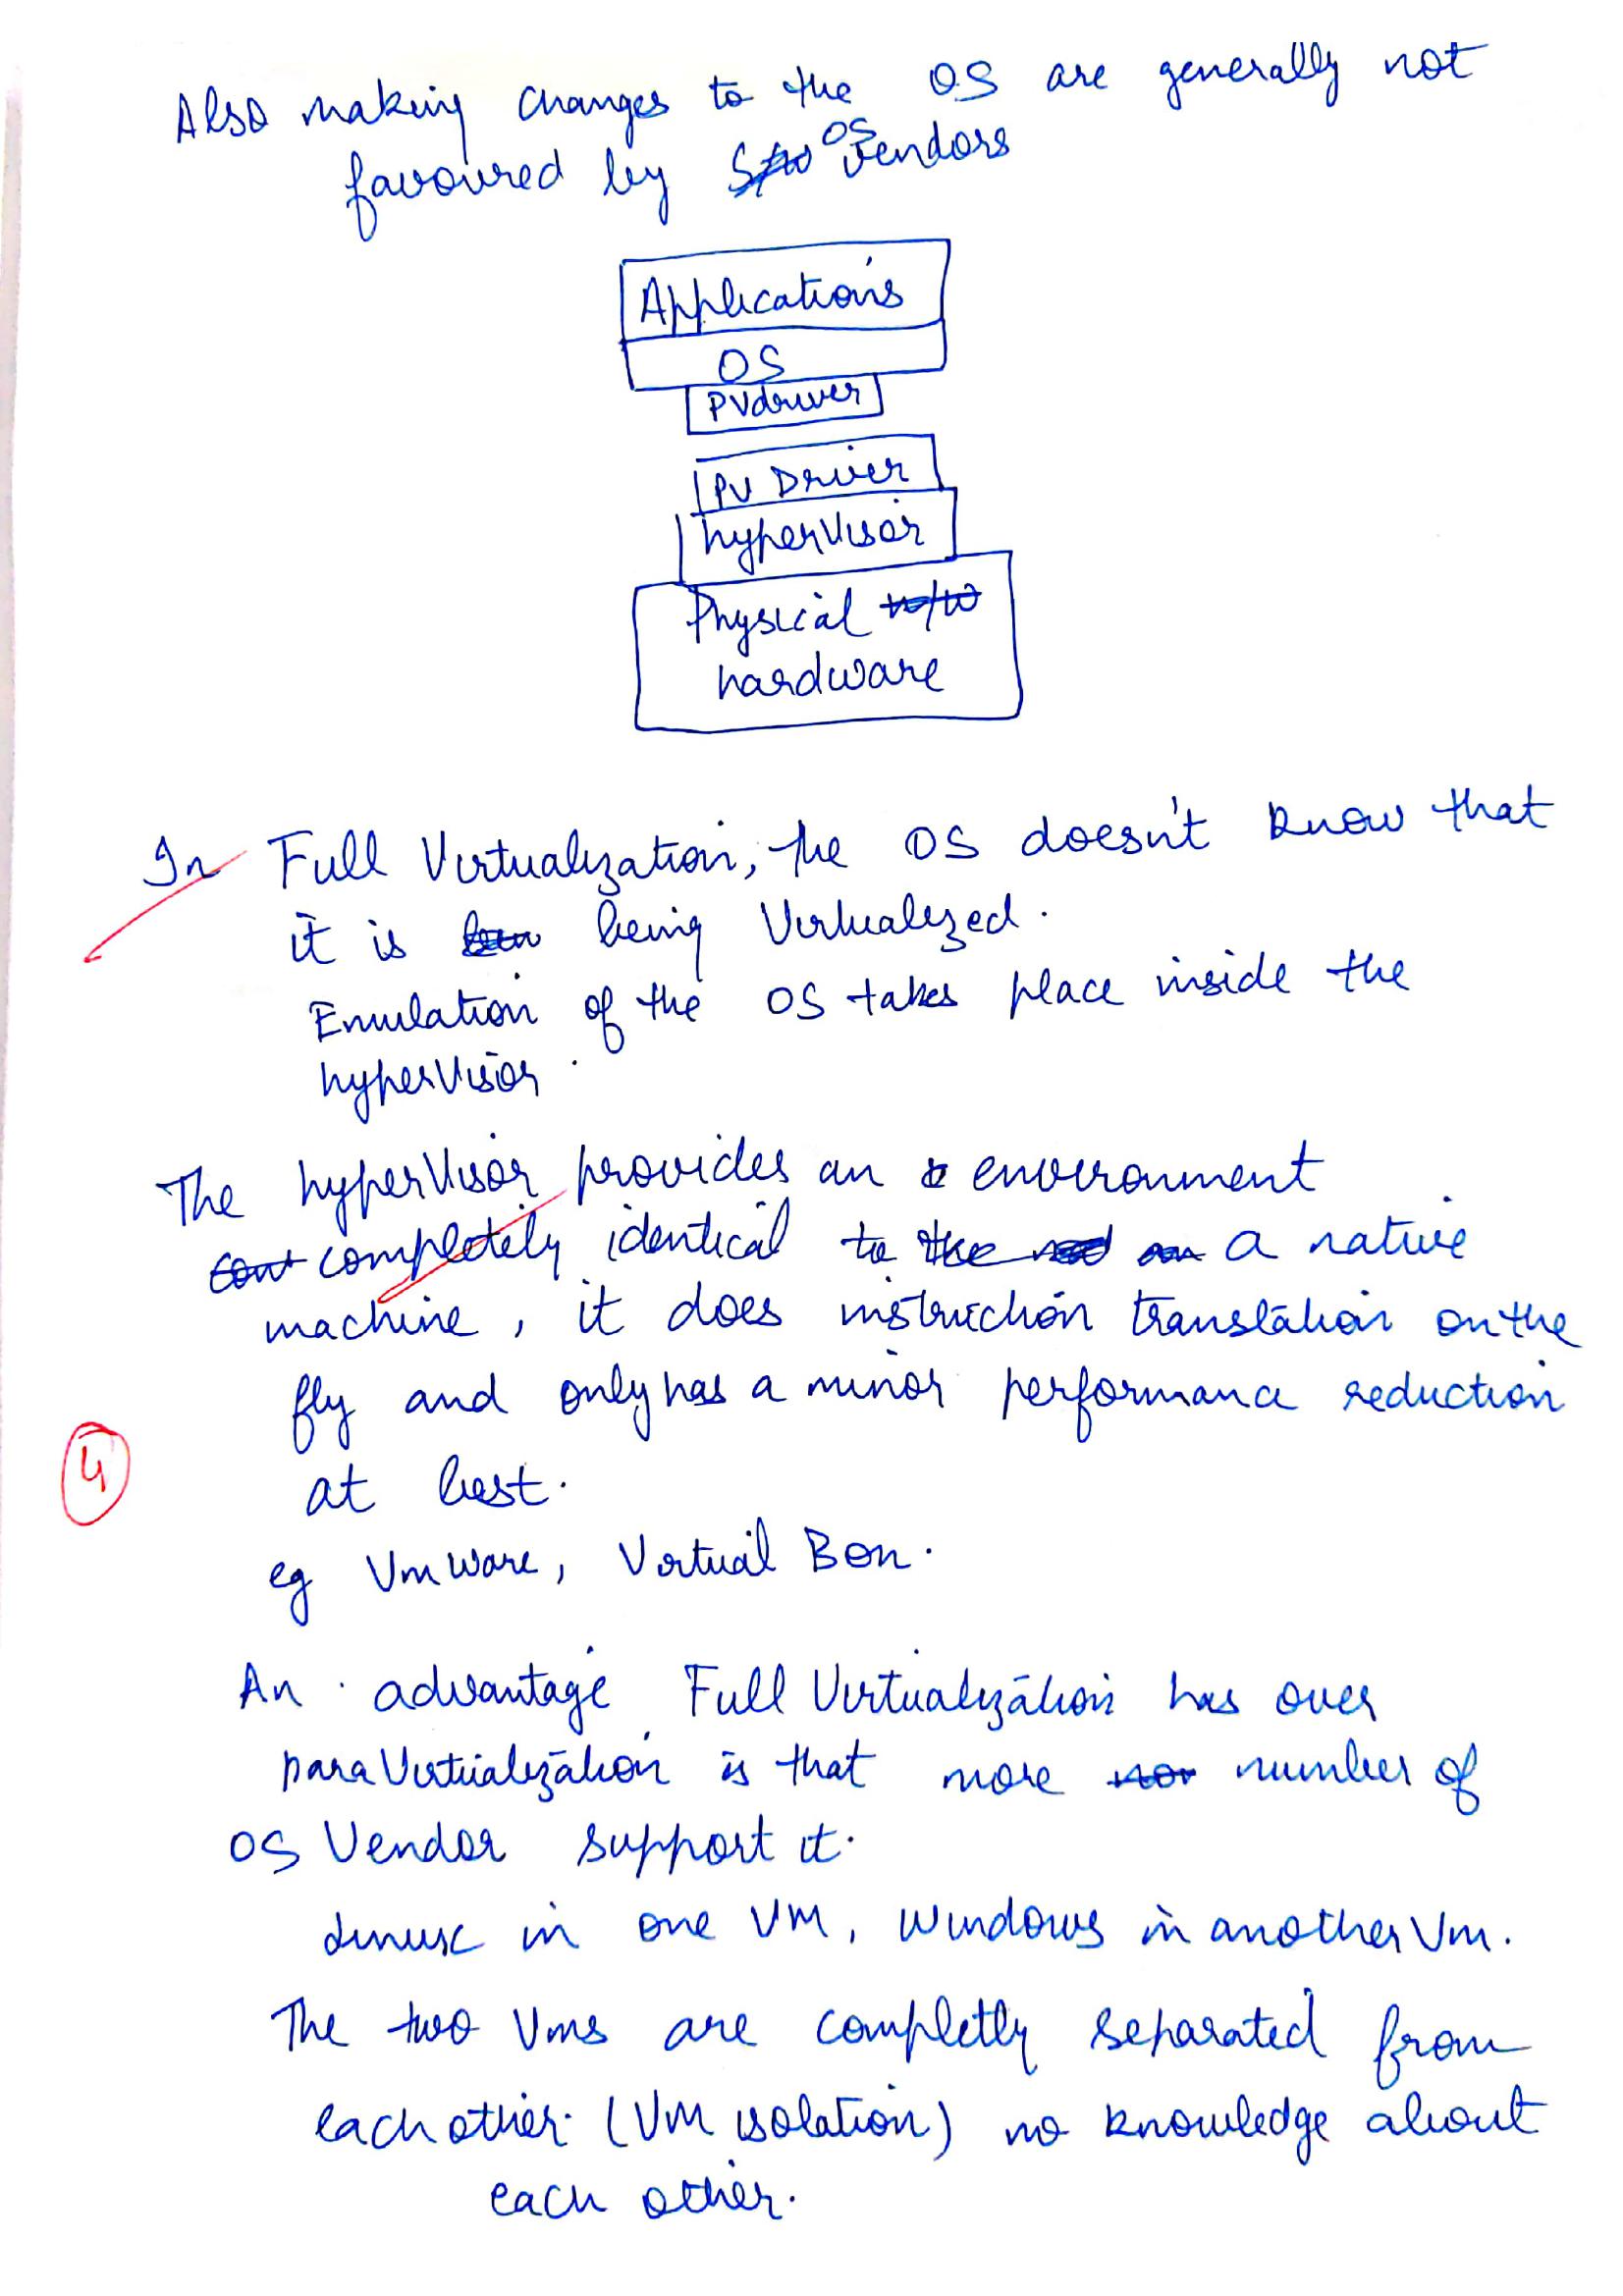 Also making changes to the OS are generally not
favoured by OS vendors
Applications
OS
PVdriver
PV Driver
hyperVisor
Physical
hardware
In Full Virtualization, the OS doesn't know that
it is being Virtualized.
Emulation of the OS takes place inside the
hyperVisor.
The hyperVisor provides an environment
completely identical to a native
machine, it does instruction translation on the
fly and only has a minor performance reduction
4
at best.
eg VmWare, Virtual Box.
An advantage Full Virtualization has over
paraVirtualization is that more number of
OS Vendor support it.
Linux in one VM, Windows in another Vm.
The two Vms are completly separated from
each other. (VM isolation) no knowledge about
each other.